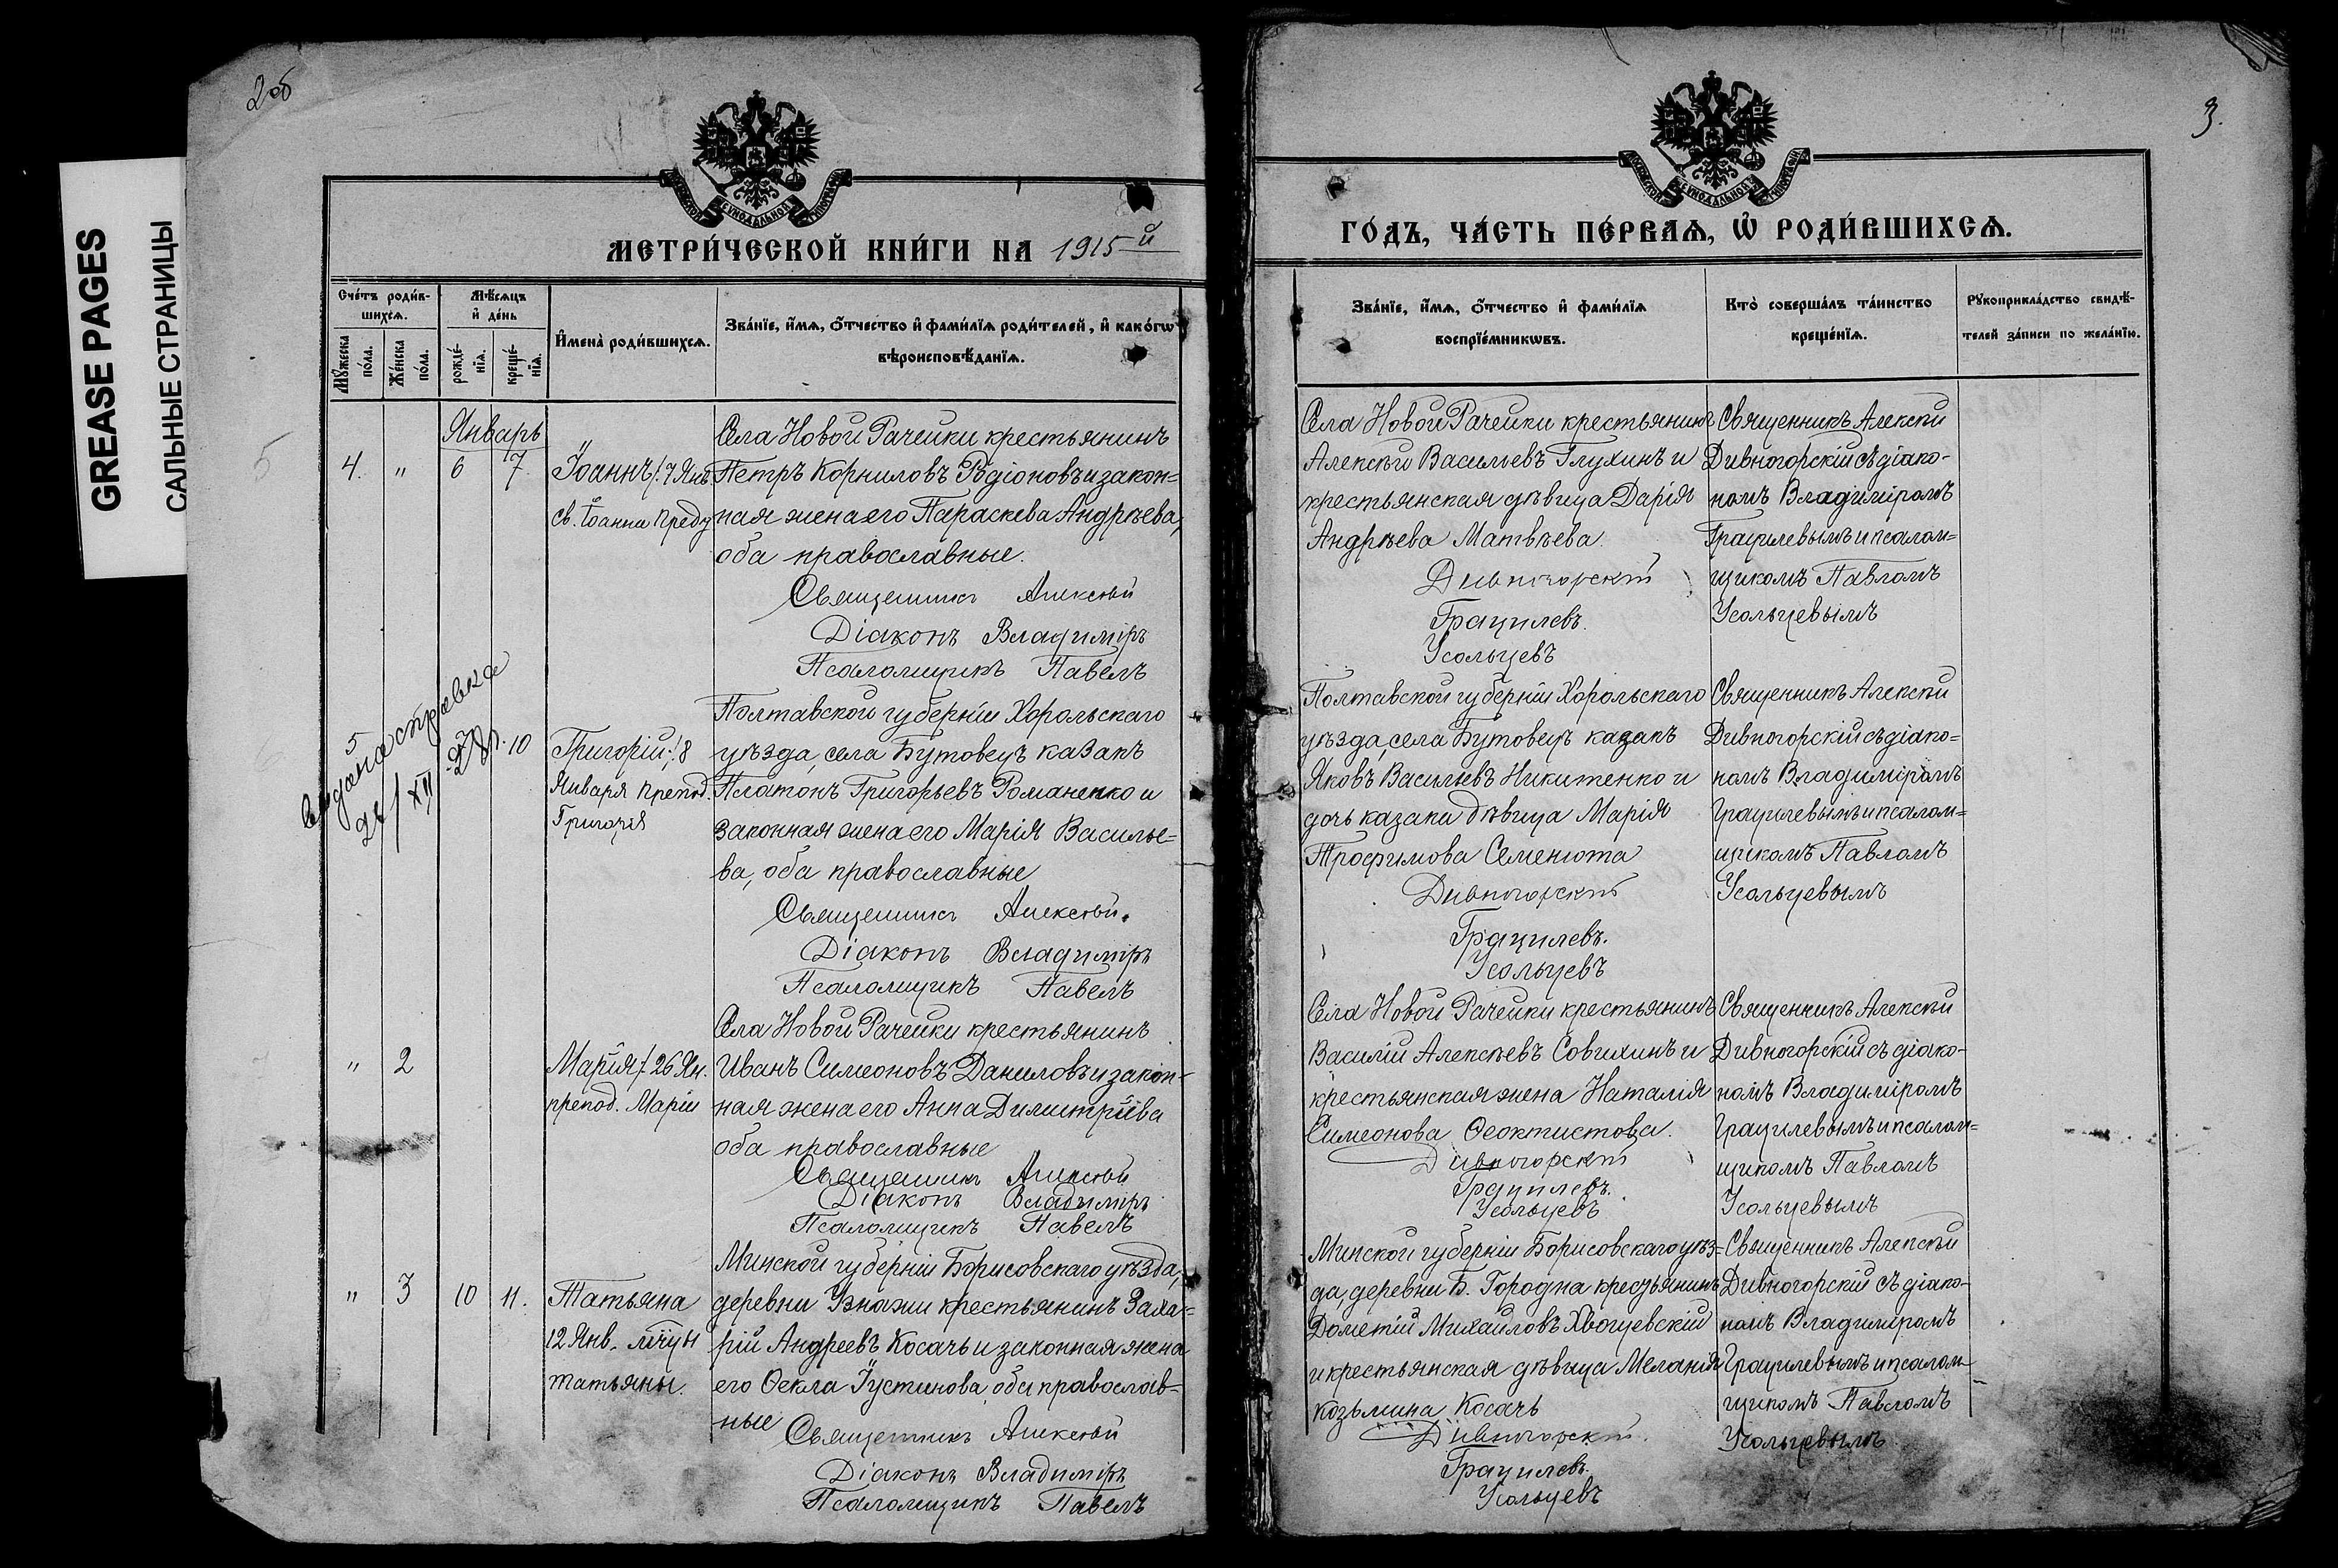 2об
GREASE PAGES
САЛЬНЫЕ СТРАНИЦЫ
МОСКОВСКОЙ СѴНОДАЛЬНОЙ ТИПОГРАФІИ
МЕТРИ́ЧЕСКОЙ КНИ́ГИ НА 1915й
Сче́тъ роди́в-
шихсѧ.
Мꙋ́жеска
по́ла.
Же́нска
по́ла.
Мѣ́сѧцъ
и҆ де́нь
рожде́-
нїѧ.
креще́-
нїѧ.
И҆мена̀ роди́вшихсѧ.
Зва́нїе, и҆́мѧ, ѻ҆́тчество и҆ фами́лїѧ роди́телей, и҆ како́гѡ
вѣроисповѣ́данїѧ.
Январь
4. " 6 7.
Іоаннъ /: 7 Янв.
св. Іоанна Пред
Села Новой Рачейки крестьянинъ
Петръ Корниловъ Родіоновъ и закон=
ная жена его Параскева Андреева,
оба православные.
Священникъ Алексѣй
Діаконъ Владиміръ
Псаломщикъ Павелъ
Выдана справка
5
10
Григорій; /: 8
Января препод.
Григорія
Полтавской губерніи Хорольскаго
уѣзда, села Бутовецъ казакъ
Платонъ Григорьевъ Романенко и
законная жена его Марія Василье-
ва, оба православные
Священникъ Алексѣй.
Діаконъ Владиміръ
Псаломщикъ Павелъ
" 2
Марія /: 26 Ян.
препод. Маріи
Села Новой Рачейки крестьянинъ
Иванъ Симеоновъ Даниловъ и закон-
ная жена его Анна Димитріева
оба православные
Священникъ Алексѣй
Діаконъ Владиміръ
Псаломщикъ Павелъ
" 3 10 11.
Татьяна
12 Янв. мчцы
Татьяны.
Минской губерніи Борисовскаго уѣзда,
деревни крестьянинъ Заха-
рій Андреевъ Косачъ и законная жена
его Ѳекла Іустинова, оба православ-
ные
Священникъ Алексѣй
Діаконъ Владиміръ
Псаломщикъ Павелъ
3.
МОСКОВСКОЙ СѴНОДАЛЬНОЙ ТИПОГРАФІИ
ГО́ДЪ, ЧА́СТЬ ПЕ́РВАѦ, Ѽ РОДИ́ВШИХСѦ.
Зва́нїе, и҆́мѧ, ѻ҆́тчество и҆ фами́лїѧ
воспрїе́мникѡвъ.
Кто̀ соверша́лъ та́инство
креще́нїѧ.
Рꙋкоприкла́дство свидѣ́-
телей за́писи по жела́нїю.
Села Новой Рачейки крестьянинъ
Алексѣй Васильевъ Глухинъ и
крестьянская дѣвица Дарія
Андреева Матвѣева.
Дивногорскій
Грацилевъ.
Усольцевъ
Священникъ Алексѣй
Дивногорскій съ діако-
номъ Владиміромъ
Грацилевымъ и псалом=
щикомъ Павломъ
Усольцевымъ
Полтавской губерніи Хорольскаго
уѣзда, села Бутовецъ казакъ
Яковъ Васильевъ Никитенко и
дочь казака дѣвица Марія
Трофимова Семенюта
Дивногорскій
Грацилевъ.
Усольцевъ
Священникъ Алексѣй
Дивногорскій съ діако=
номъ Владиміромъ
Грацилевымъ и псалом=
щикомъ Павломъ
Усольцевымъ
Села Новой Рачейки крестьянинъ
Василій Алексѣевъ Совихинъ и
крестьянская жена Наталія
Симеонова Ѳеоктистова.
Дивногорскій
Грацилевъ.
Усольцевъ
Священникъ Алексѣй
Дивногорскій съ діако-
номъ Владиміромъ
Грацилевымъ и псалом=
щикомъ Павломъ
Усольцевымъ
Минской губерніи Борисовскаго уѣз=
да, деревни Б. Городна крестьянинъ
Дометій Михайловъ Хвощевскій
и крестьянская дѣвица Меланія
Козьмина Косачъ
Дивногорскій.
Грацилевъ.
Усольцевъ
Священникъ Алексѣй
Дивногорскій съ діако-
номъ Владиміромъ
Грацилевымъ и псалом-
щикомъ Павломъ
Усольцевымъ